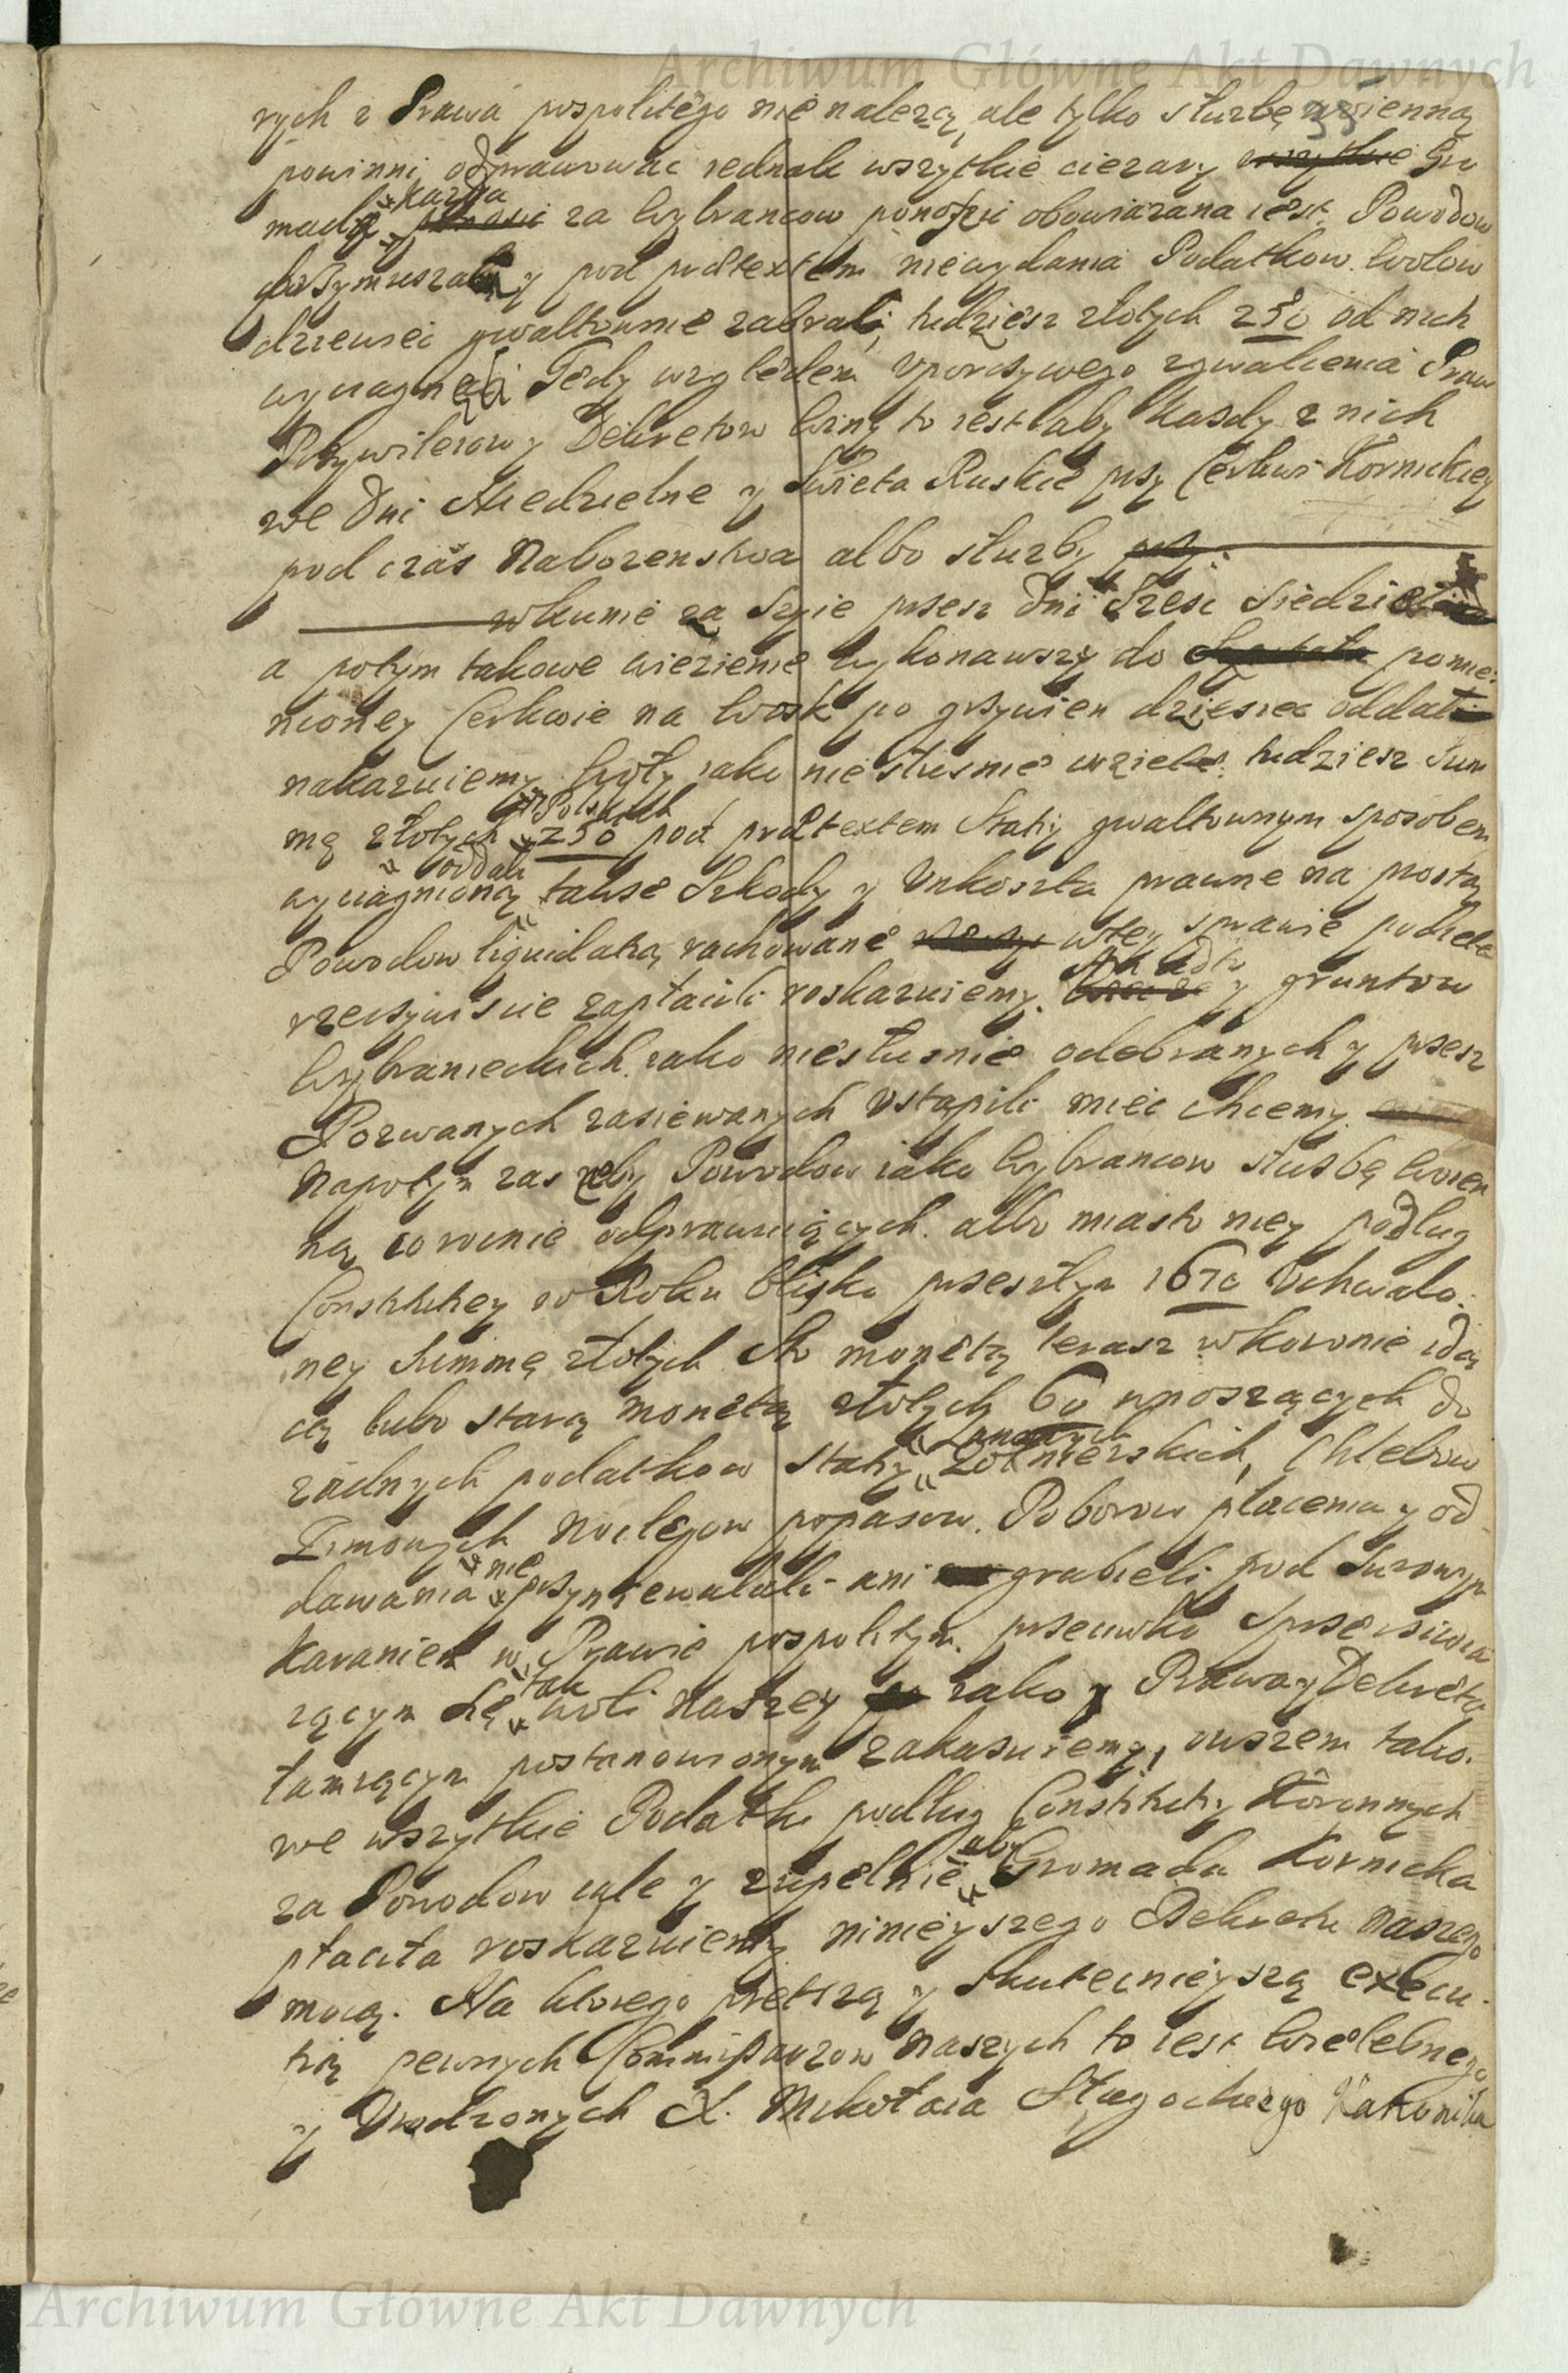 Archiwum Główne Akt Dawnych
35
rych z Prawa pospolitego nie nalezą, ale tylko sluzbę woienną
powinni odprawowac iednak wszytkie ciezary wszytkie Gro
mada kazda ponosic za Wybrancow ponosic obowiązana iest. Powodow
y pod praetextem niewydania Podatkow. Wolow
dziewięc gwaltownie zabrali, tudziesz złotych 250 od nich
wyciągneli Tedy względem Vporczywego zgwalcenia Praw
Przywileiow y Dekretow winy to iest aby Kasdy z nich
we Dni Niedzielne y Swieta Ruskie przy Cerkwi Kornickiey
pod czas Nabozenstwa albo sluzby przy
w kunie za Szyie przesz Dni Szesc siedzieli
a potym takowe więzienie wykonawszy do Szpitala pomie:
nioney Cerkwie na Wosk po grzywien dziesięc oddali
nakazuiemy. Woły iako nie slusnie wzięte, tudziesz Sum
mę złotych Polskich 250 pod praetextem Staty gwaltownym sposobem
wyciągnioną oddali takse Szkody y Vnkoszta prawne na prostą
Powodow liquidatią rachowane w tey sprawie podięte
rzeczywiscie zapłacili roskazuiemy. y gruntow
Wybranieckich. iako nieslusnie odebranych y przesz
Pozwanych zasiewanych Vstąpili miec chcemy.
Napotym zas zeby Powodow iako Wybrancow slusbę Woien
ną corocznie odprawuiących. albo miasto niey podlug
Constitutiey w Roku blisko przeszłym 1670 Vchwalo:
ney Summę złotych Sto monetą terasz w koronie idą
cą lubo starą monetą złotych 60 wnoszących do
zadnych podatkow Staty Lanowych Zołnierskich, Chlebow
Zimowych Noclegow popasow. Poborow płacenia y od
dawania nie przyniewalali ani grabieli pod Surowym
Karaniem w Prawie pospolitym. przeciwko Sprzeciwia
iącym Się tak woli Naszey iako y Prawa y Dekreta
łamiącym postanowionym zakasuiemy, owszem tako:
we wszytkie Podatki podlug Constitutiy Koronnych
za Powodow cale y zupelnie aby Gromada Kornicka
płaciła roskazuiemy ninieyszego Dekretu Naszego
mocą. Na ktorego prętszą y Skutecznieyszą execu:
tią pewnych Commissarzow Naszych to iest Wielebnego
y Vrodzonych X. Mikołaia Kanonika
Archiwum Główne Akt Dawnych